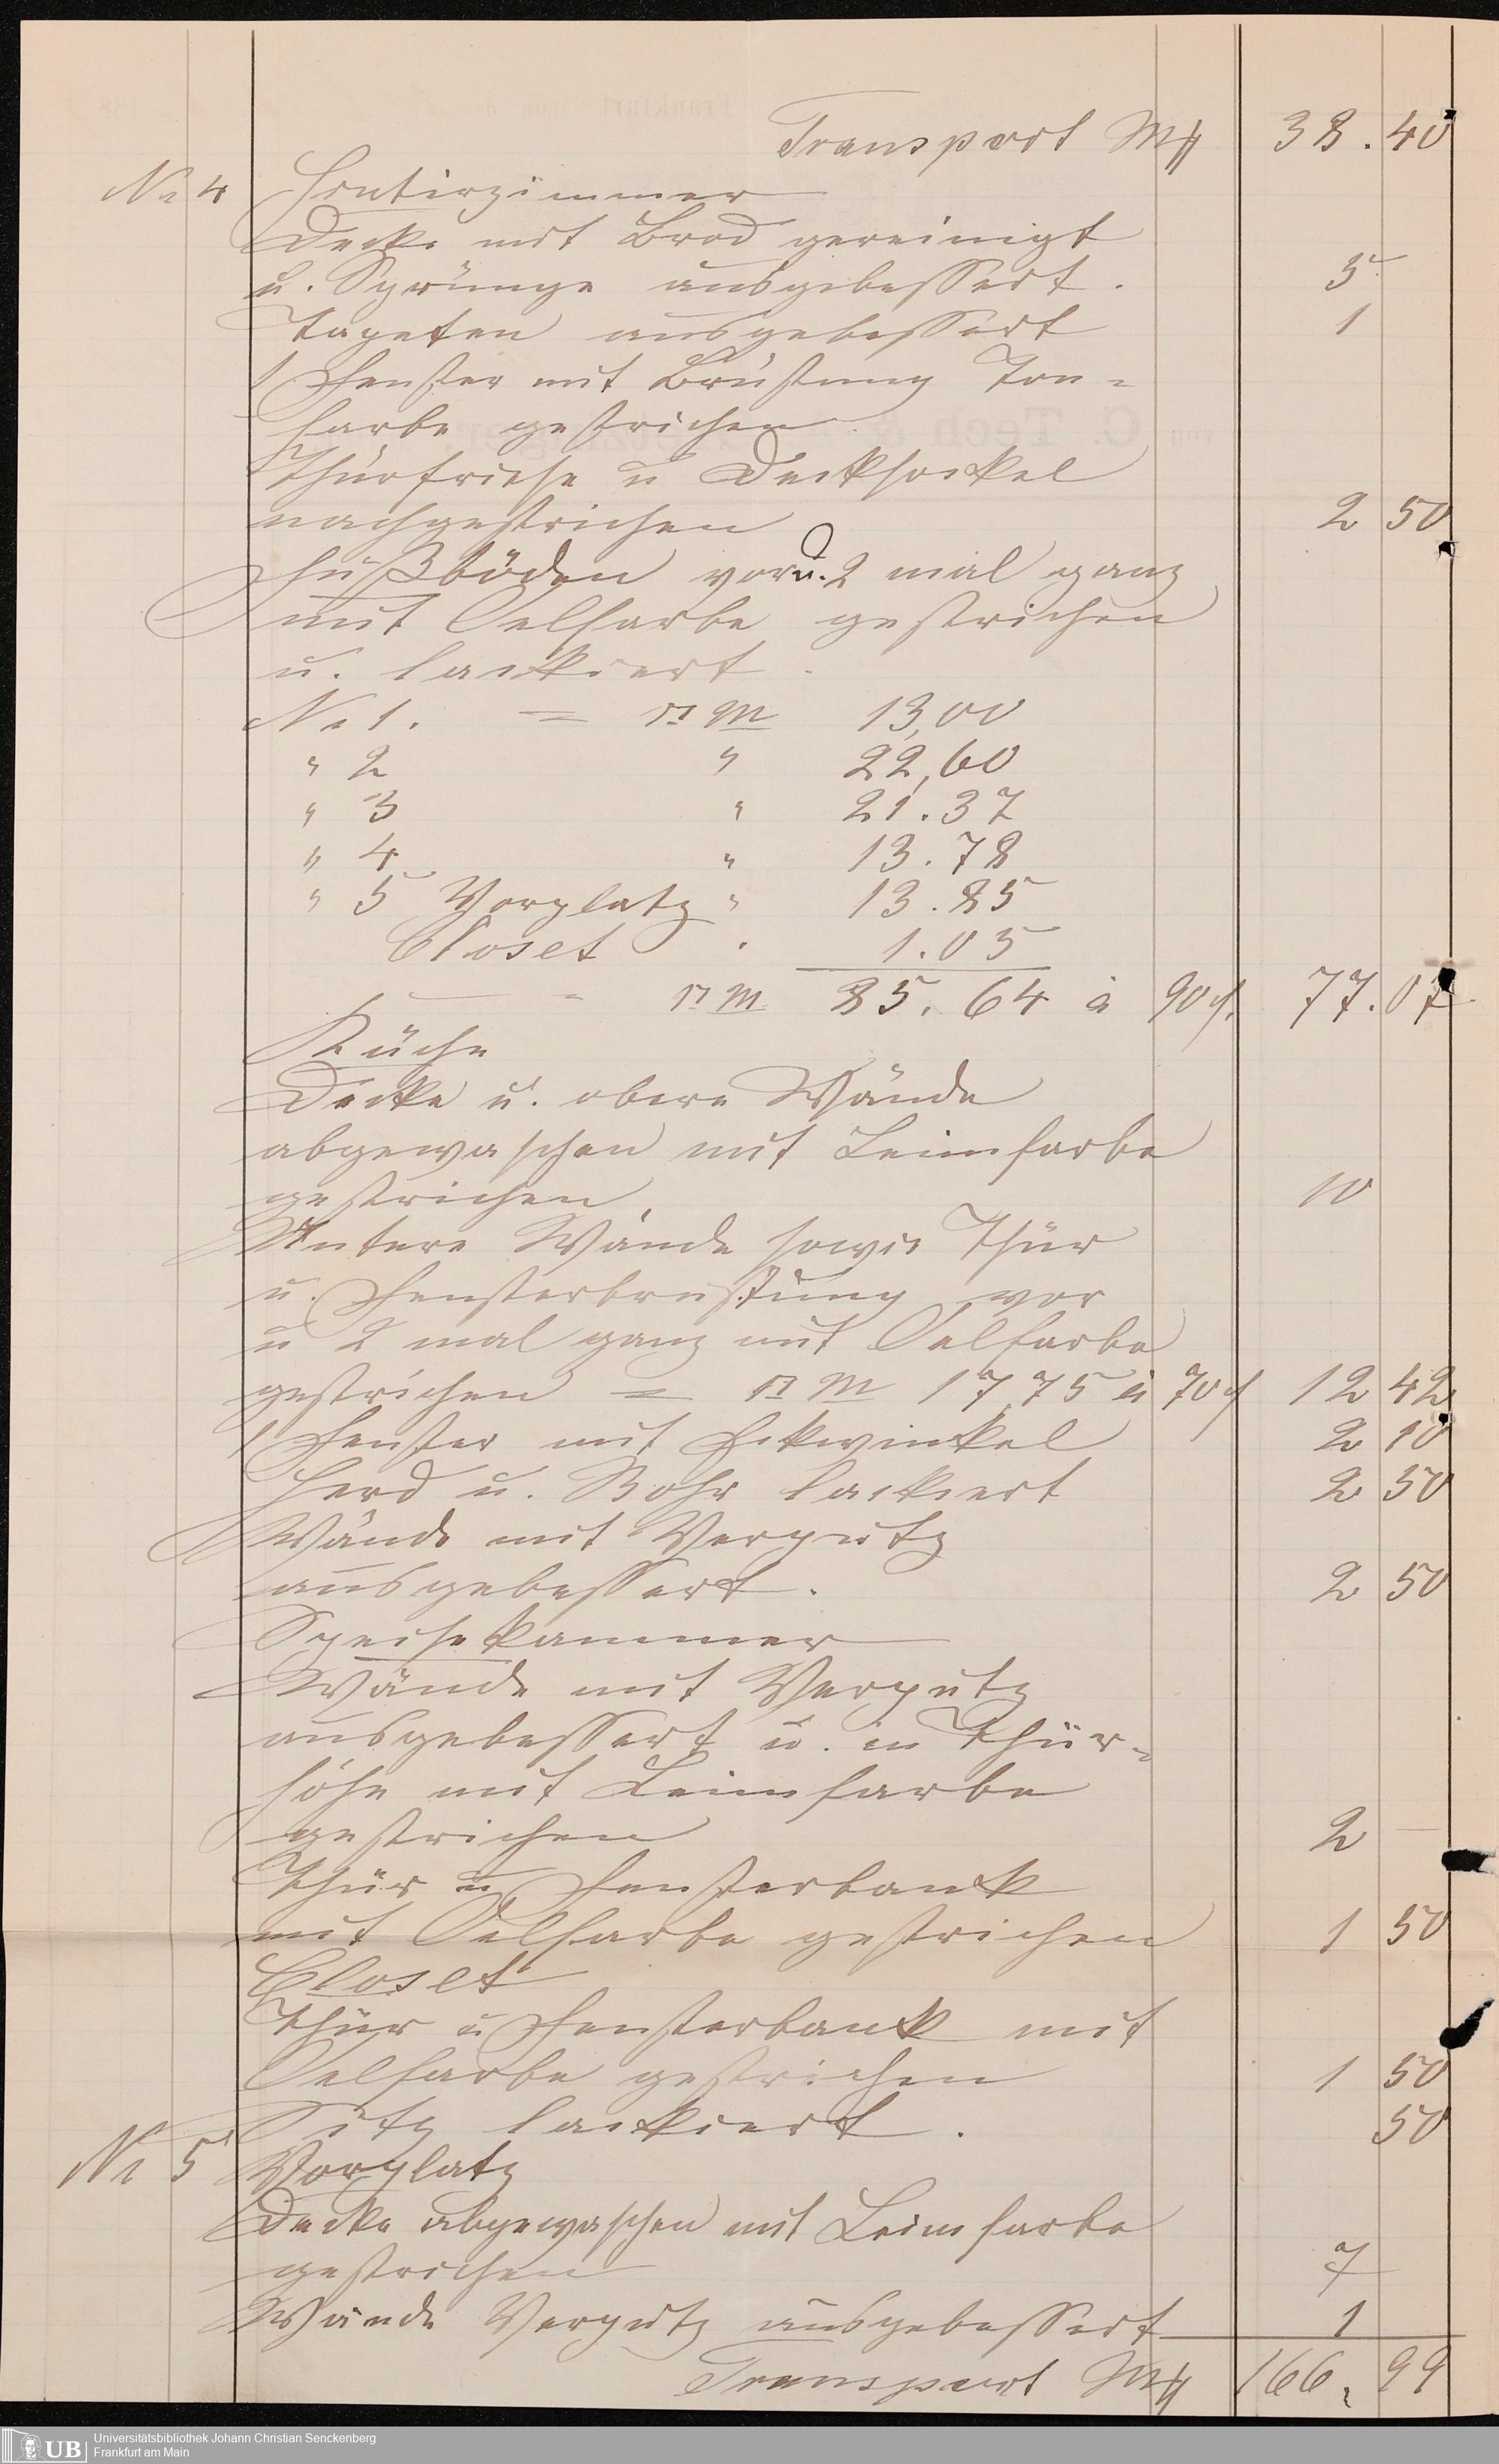 Transport M 38.40
No 4 Hinterzimmer
Decke mit Brod gereinigt
u. Sprünge ausgebessert. 5
Tapeten ausgebessert 1
1 Fenster mit Brüstung Ton-
farbe gestrichen
Thürfriese u Decksockel
nachgestrichen 2 50
Fußböden vor u. 2 mal ganz
mit Oelfarbe gestrichen
u. lackiert.
No 1. = □ m 13,00
" 2 " 22,60
" 3 " 21.37
" 4 " 13.78
" 5 Vorplatz " 13.85
Closet " 1.05
= □ m 85.64 à 90 ₰. 77.07
Küche
Decke u. obere Wände
abgewaschen mit Leimfarbe
gestrichen, 10
Untere Wände sowie Thür
u. Fensterbrüstung vor
u 2 mal ganz mit Oelfarbe
gestrichen = □ m 17,75 à 70 ₰ 12 42
1 Fenster mit Eckwinkel 2 10
Herd u. Rohr lackiert 2 50
Wände mit Verputz
ausgebessert. 2 50
Speisekammer
Wände mit Verputz
ausgebessert u. in Thür-
höhe mit Leimfarbe
gestrichen 2 —
Thür u Fensterbank
mit Oelfarbe gestrichen 1 50
Closet
Thür u Fensterbank mit
Oelfarbe gestrichen 1 50
Sitz lackiert. 50
No 5 Vorplatz
Decke abgewaschen mit Leimfarbe
gestrichen 7
Wände Verputz ausgebessert 1
Transport M 166,99
UB
Universitätsbibliothek Johann Christian Senckenberg
Frankfurt am Main